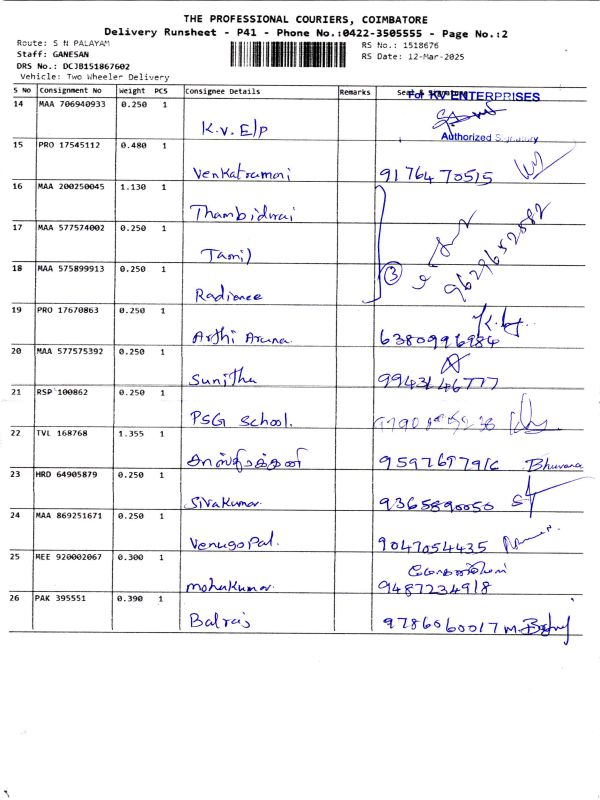 THE PROFESSIONAL COURIERS, COIMBATORE
Delivery Runsheet - P41 - Phone No.:0422-3505555 - Page No.:2
Route: S N PALAYAM
RS No.: 1518676
Staff: GANESAN
RS Date: 12-Mar-2025
DRS No.: DCJB151867602
Vehicle: Two Wheeler Delivery
S No Consignment No Weight PCS Consignee Details Remarks Seal &
For KV ENTERPRISES
14 MAA 706940933 0.250 1
K.v. E/p
Authorized Signatory
15 PRO 17545112 0.480 1
Venkatramani 9176470515
16 MAA 200250045 1.130 1
Thambidurai
17 MAA 577574002 0.250 1
Tamil
9629652582
18 MAA 575899913 0.250 1
Radiance
3
19 PRO 17670863 0.250 1
Arthi Aruna 6380996984
20 MAA 577575392 0.250 1
Sunitha 9943146777
21 RSP 100862 0.250 1
PSG School.
22 TVL 168768 1.355 1
9597697916 Bhuvana
23 HRD 64905879 0.250 1
Sivakumar 9365890050
24 MAA 869251671 0.250 1
Venugopal. 9047054435
25 MEE 920002067 0.300 1
mohankumar 9487234918
26 PAK 395551 0.390 1
Balraj 9786060017